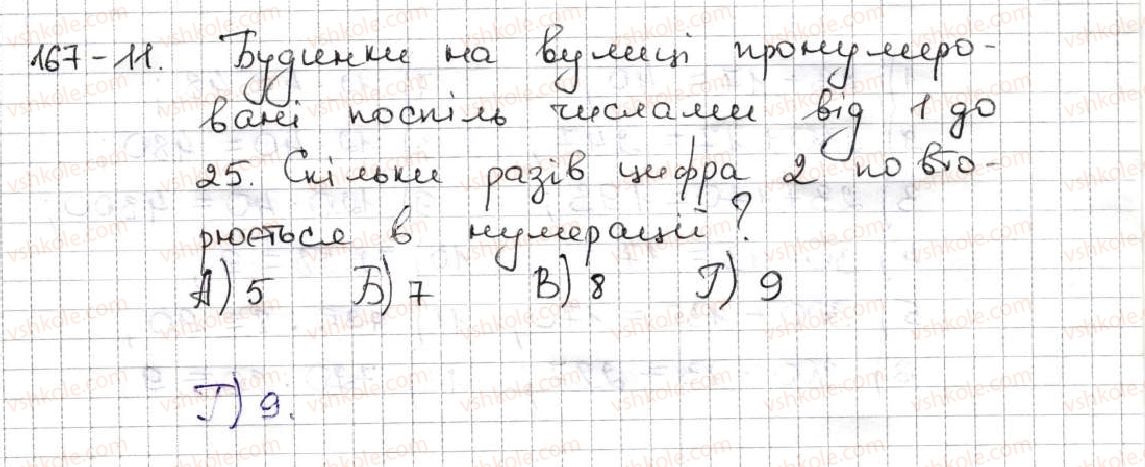 167-11. Будинки на вулиці пронумеро-
вані поспіль числами від 1 до
25. Скільки разів цифра 2 повто-
рюється в нумерації?
А) 5 Б) 7 В) 8 Г) 9
Г) 9.